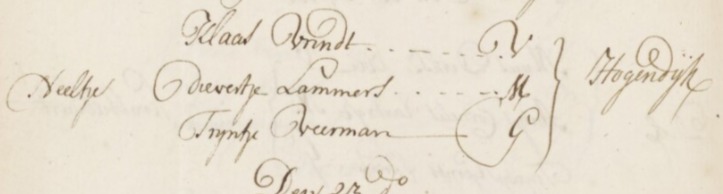 Klaas Vrindt . . . . . . . V
Neeltje Dieuwertje Lammers . . . . . . . M } Hogendÿk
Trÿntje Veerman — G
Den 22 do